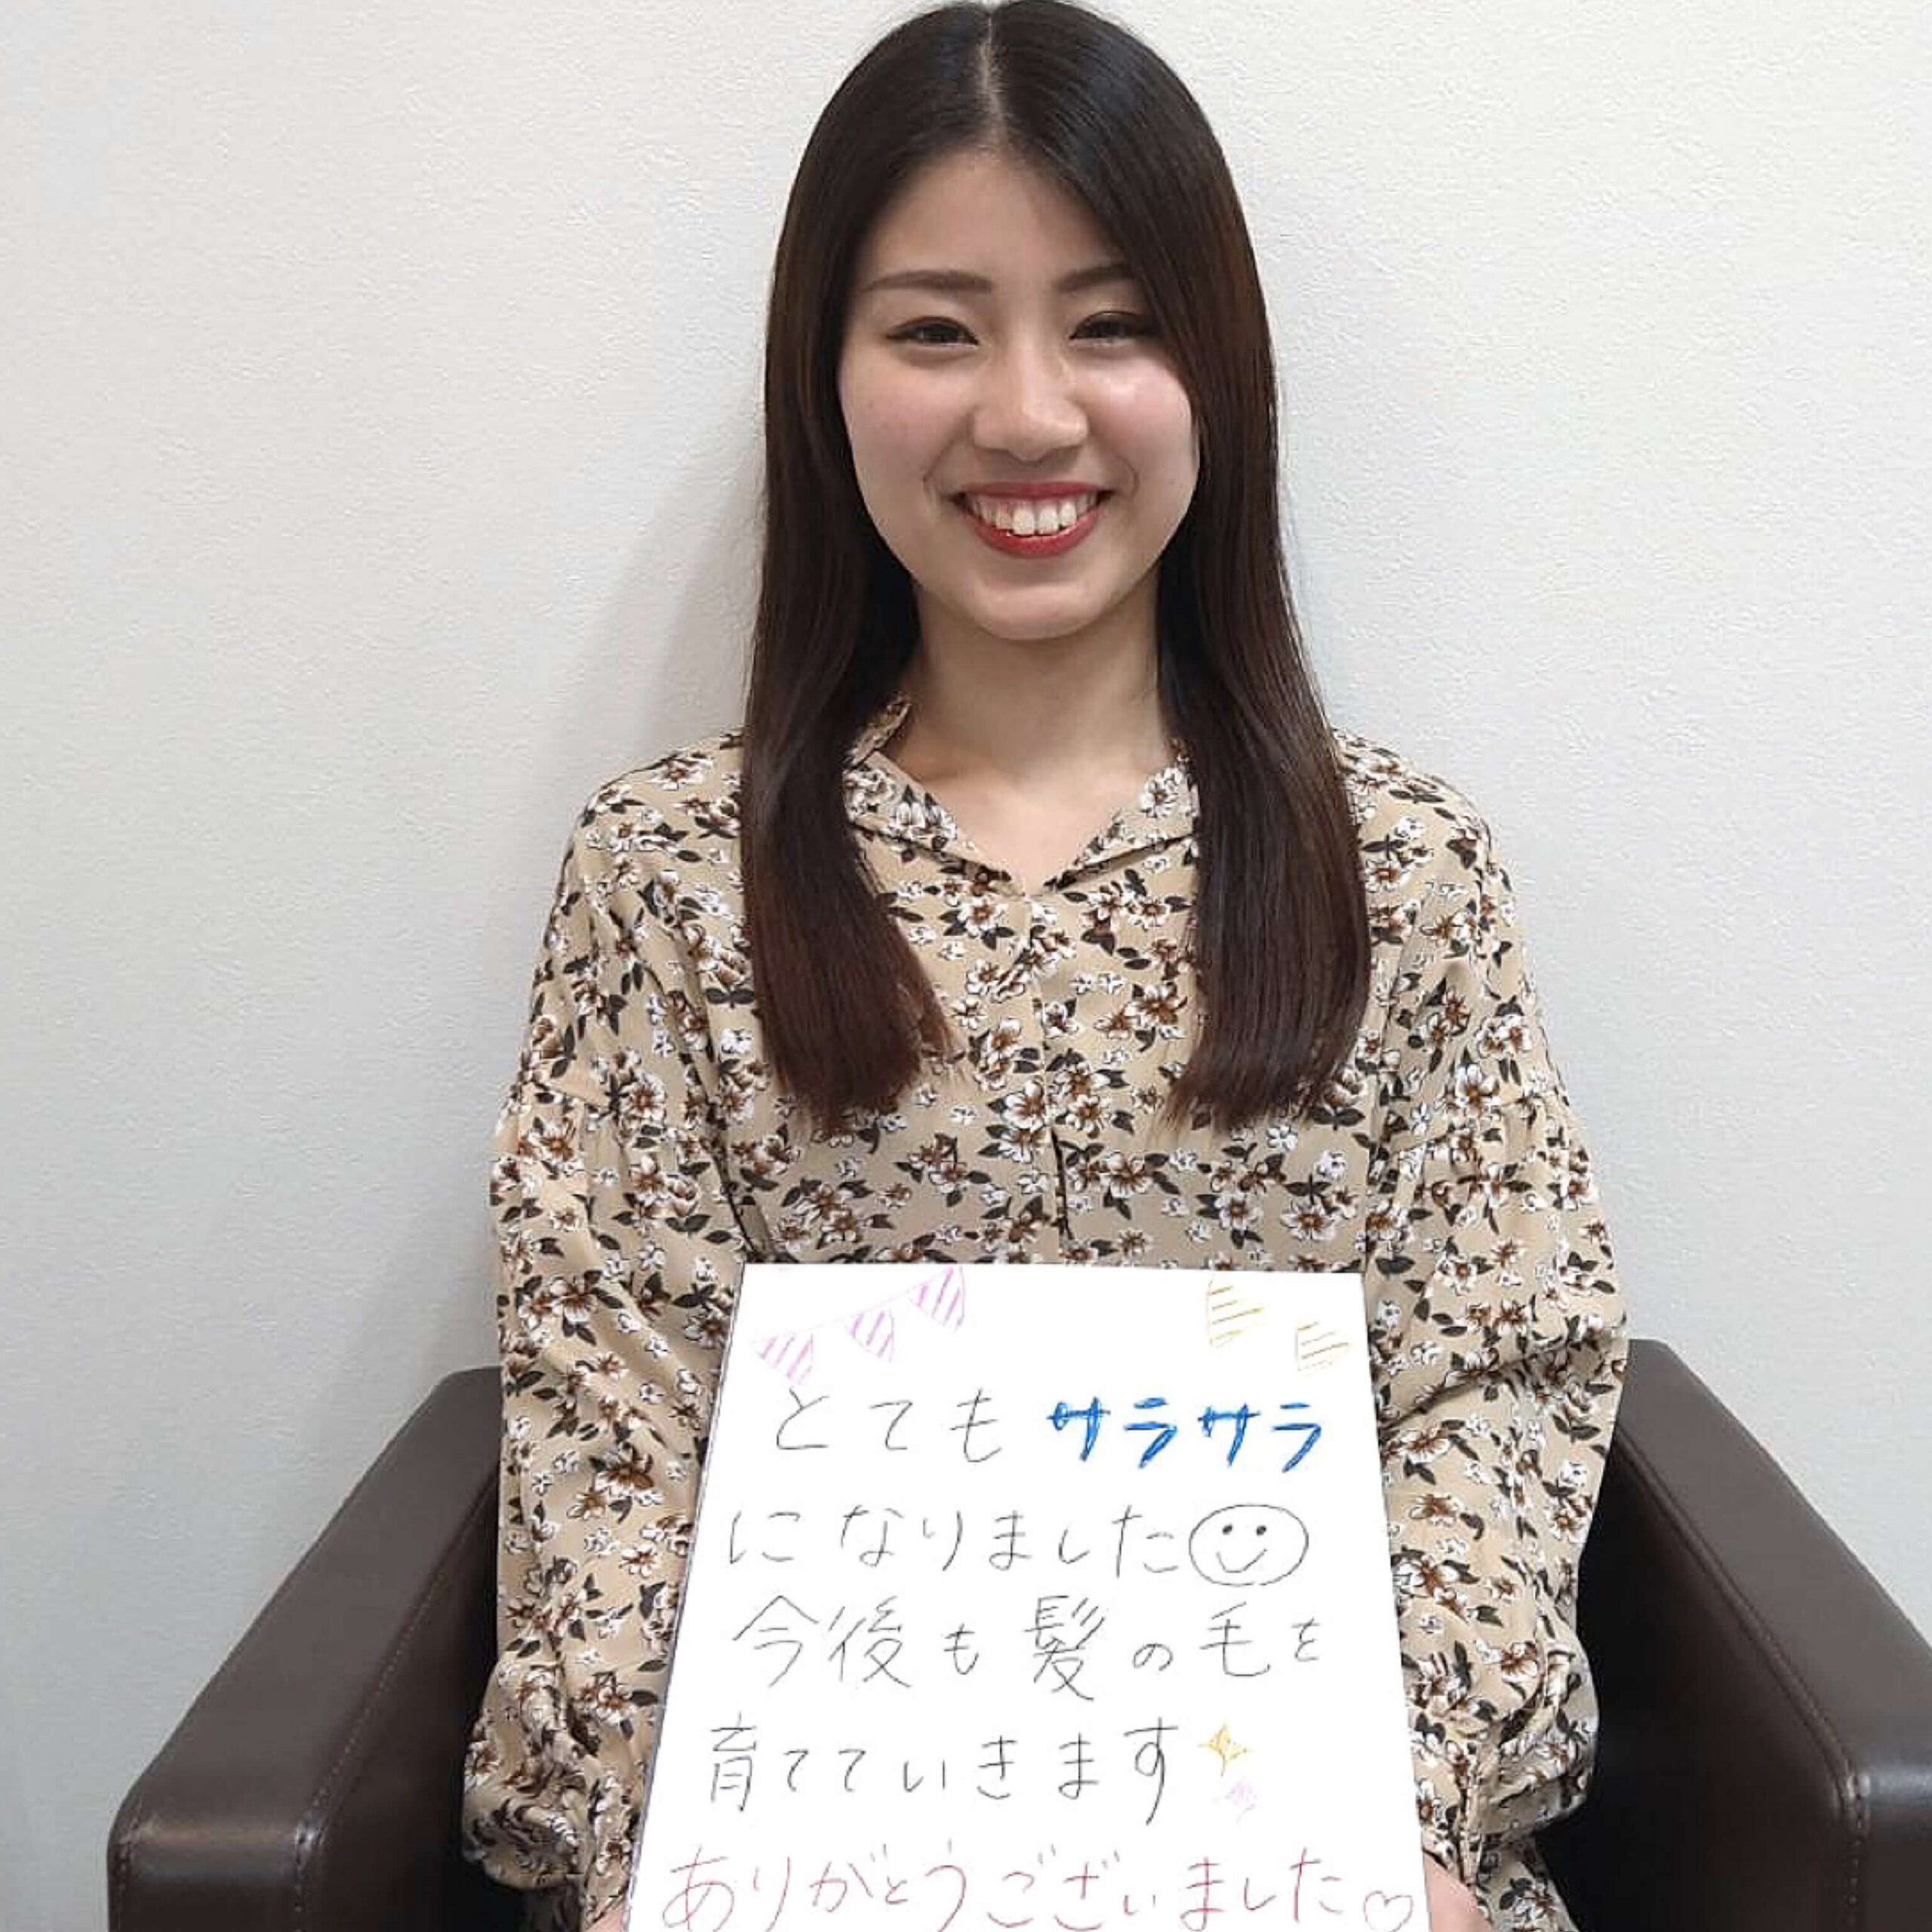 とてもサラサラ
になりました
今後も髪の毛を
育てていきます
ありがとうございました♡